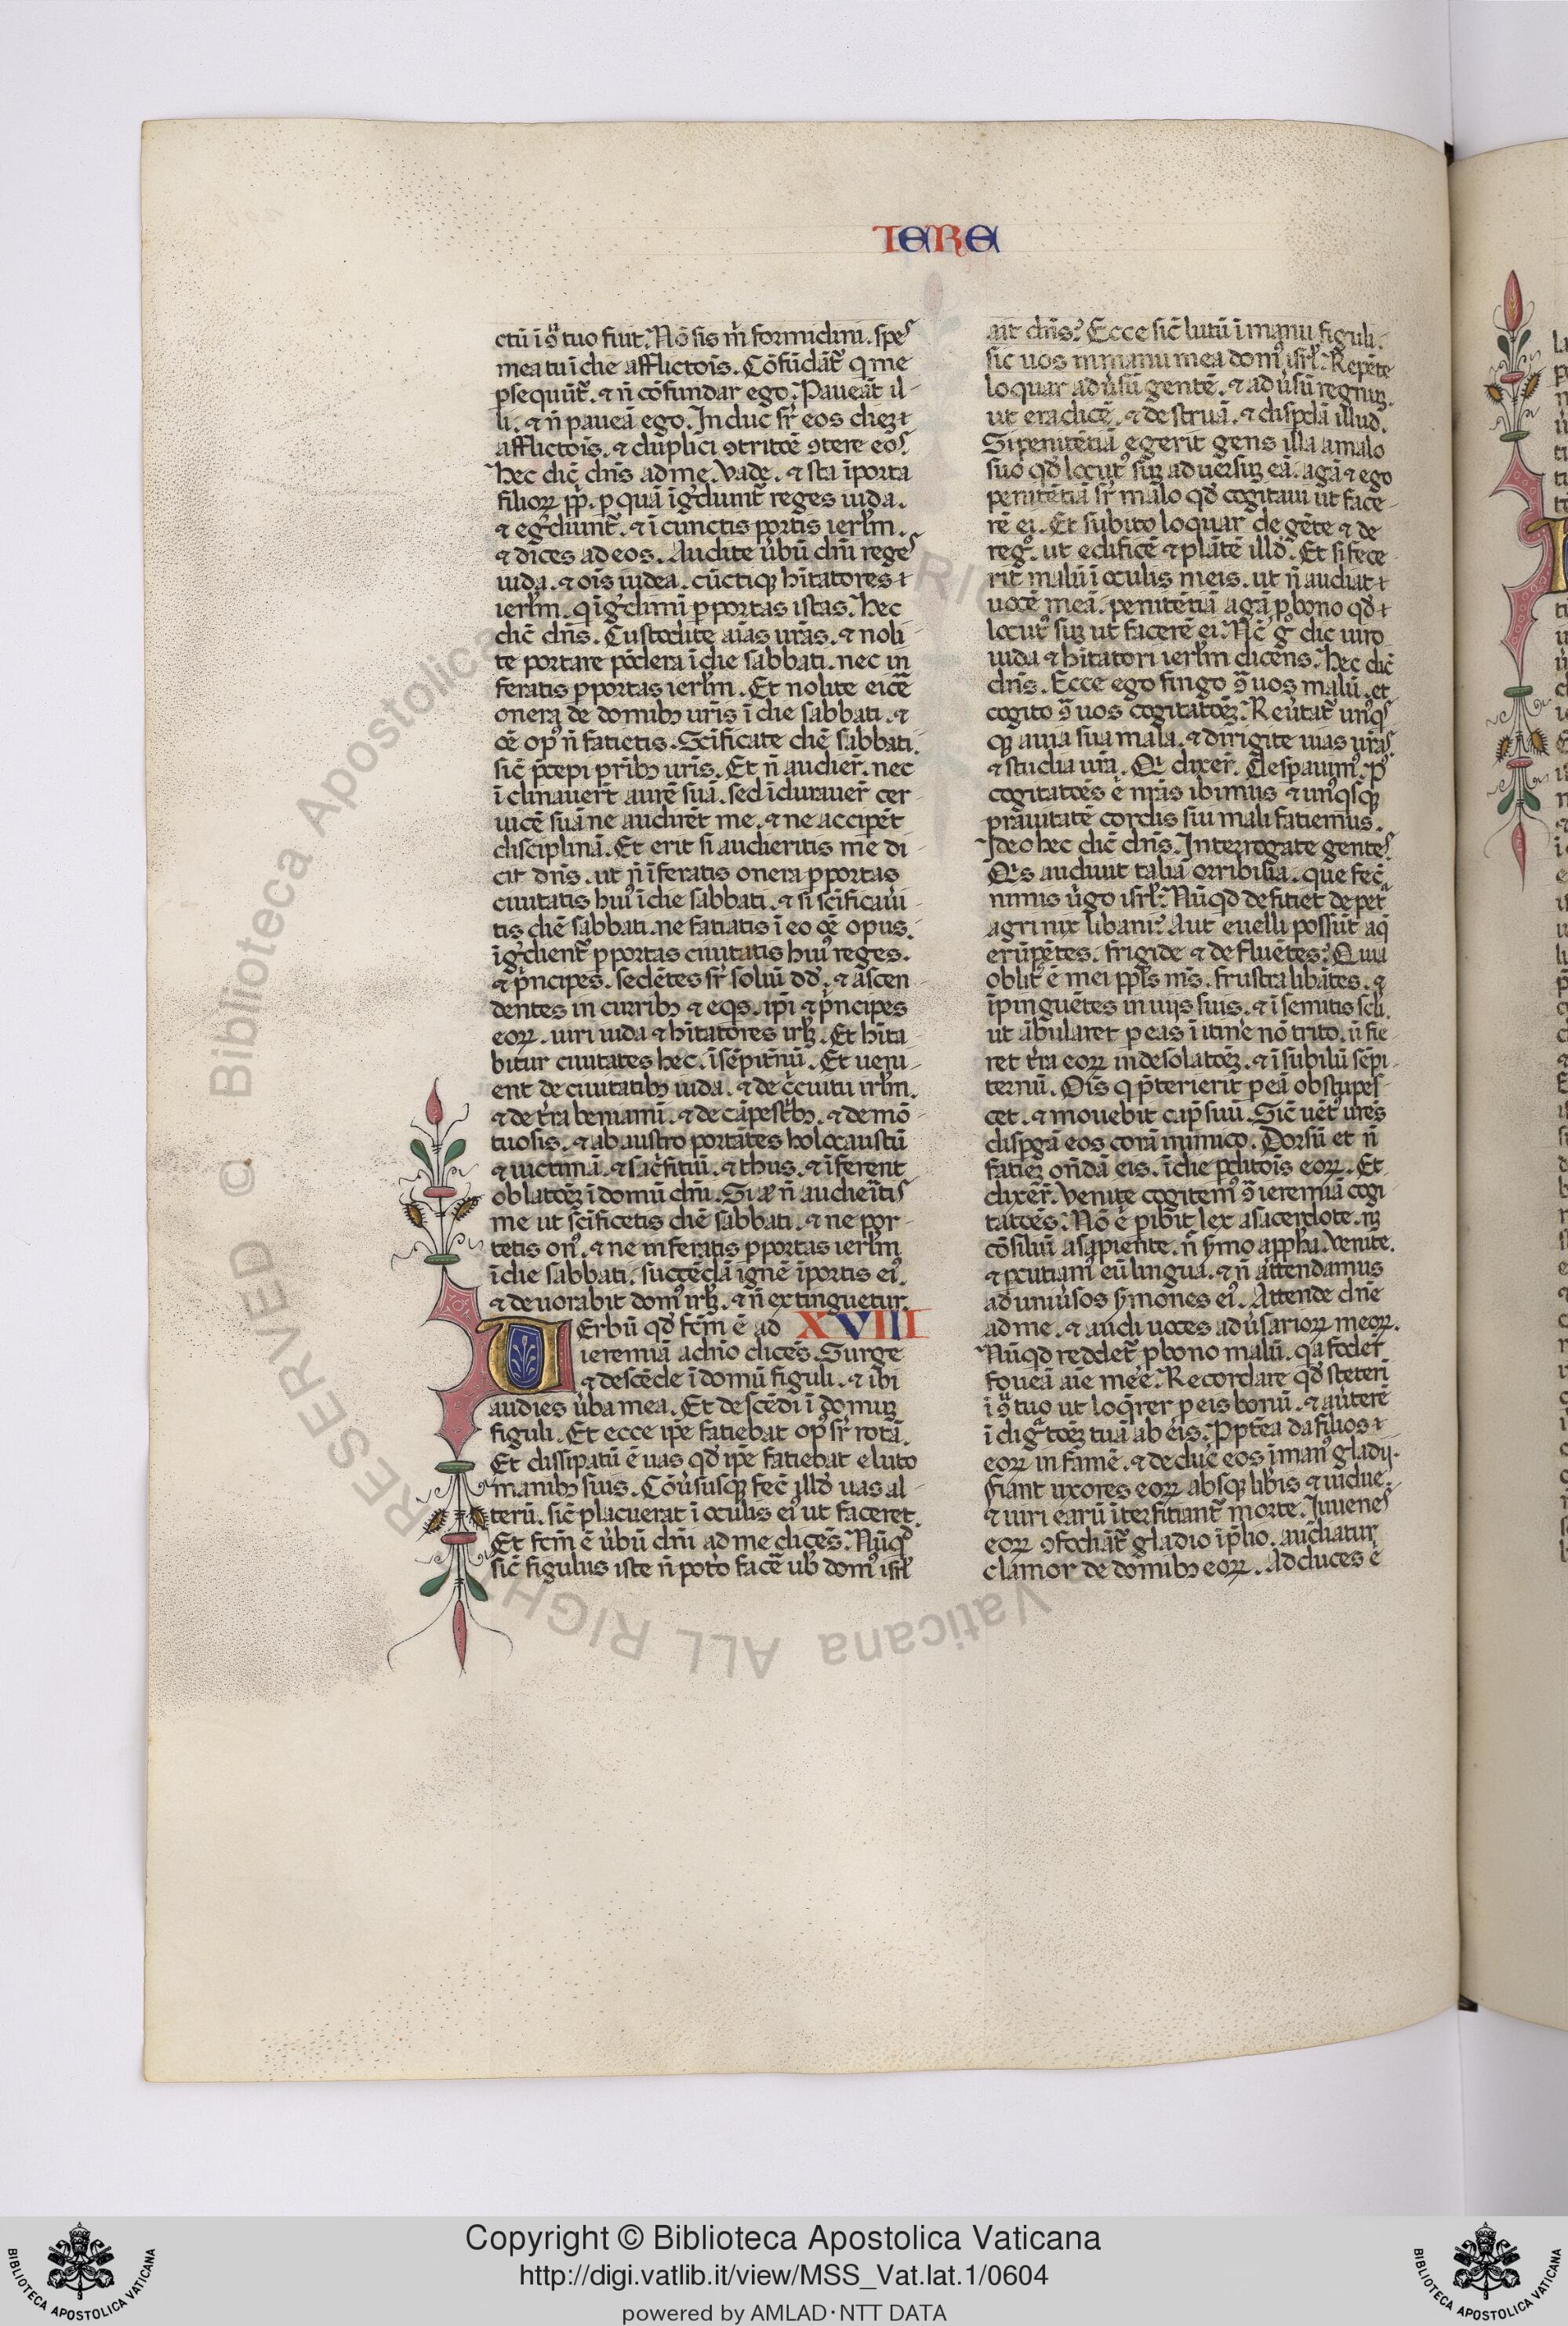 IERE
ctū ī ɔ̄spectu tuo fuit. Nō sis m̄ formidini. spes
mea tu ī die afflictōis. Cōfūdāt̄ q me
psequūt̄. ⁊ n̄ cōfundar ego. Paueāt il-
li. ⁊ n̄ paueā ego. Induc sr̄ eos diez
afflictōis. ⁊ duplici ɔtritōe ɔtere eos
hec dic̄ dn̄s ad me. Vade. ⁊ sta ī porta
filioꝝ pp̄. p quā īg̊diunt̄ reges iuda.
⁊ eg̊diunt̄. ⁊ ī cunctis portis ierl̄m.
⁊ dices ad eos. Audite ūbū dn̄i reges
iuda. ⁊ oīs iudea. cūctiqꝫ hītatores
ierl̄m. q īg̊dimī p portas istas. Hec
dic̄ dn̄s. Custodite aīas ur̄as. ⁊ noli
te portare pōdera ī die sabbati. nec in
feratis p portas ierl̄m. Et nolite eicē
onera de domibꝫ ur̄is ī die sabbati. ⁊
oē opꝰ n̄ fatietis. Scīficate diē sabbati.
sic̄ p̄cepi pr̄ibꝫ ur̄is. Et n̄ audier̄. nec
ī clinauer̄t aurē suā. sed īdurauer̄ cer
uicē suā ne audirēt me. ⁊ ne accipēt
disciplinā. Et erit si audieritis me di
cit dn̄s. ut n̄ īferatis onera p portas
ciuitatis huiꝰ ī die sabbati. ⁊ si scīficaūi
tis diē sabbati. ne fatiatis ī eo oē opus.
īg̊dient̄ p portas ciuitatis huiꝰ reges.
⁊ p̄ncipes. sedētes sr̄ soliū dd̄. ⁊ ascen
dentes in curribꝫ ⁊ eq̄s. ip̄i ⁊ p̄ncipes
eoꝝ. uiri iuda ⁊ hītatores irl̄. Et hīta
bitur ciuitates hec. ī sēpit̄nū. Et ueni-
ent de ciuitatibꝫ iuda. ⁊ de c̄cuitu irl̄m.
⁊ de t̄ra beniamī. ⁊ de cāpestr̄bꝫ. ⁊ de mō
tuosis. ⁊ ab austro portātes holocaustū
⁊ uictimā. ⁊ sac̄fitiū. ⁊ thus. ⁊ īferent
oblatōeꝫ ī domū dn̄i. Si ā n̄ audieritis
me ut scīficetis diē sabbati. ⁊ ne por-
tetis onꝰ. ⁊ ne inferatis p portas ierl̄m
ī die sabbati. succēdā ignē ī portis eiꝰ.
⁊ deuorabit domꝰ irl̄. ⁊ n̄ extinguetur.
Verbū qd̄ fc̄m ē ad XVIII
ieremiā a dn̄o dices̄. Surge
⁊ descēde ī domū figuli. ⁊ ibi
audies ūba mea. Et descēdi ī domuꝫ
figuli. Et ecce ip̄e fatiebat opꝰ sr̄ rotā.
Et dissipatū ē uas qd̄ ip̄e fatiebat e luto
manibꝫ suis. Cōūsusqꝫ fec̄ illd̄ uas al-
terū. sic̄ placuerat ī oculis eiꝰ ut faceret.
Et fc̄m ē ūbū dn̄i ad me dices̄. Nūqd̄
sic̄ figulus iste n̄ pot̄o facē uob̄ domꝰ isrl̄
ait dn̄s? Ecce sic̄ lutū ī manu figuli.
sic uos in manu mea domꝰ isrl̄. Repēte
loquar ad ūsū gentē. ⁊ ad ūsū regnuꝫ.
ut eradicē. ⁊ destruā. ⁊ dispdā illud.
Si penitētiā egerit gens illa a malo
suo qd̄ locutꝰ suꝫ aduersuꝫ eā. agā ⁊ ego
penitētiā sr̄ malo qd̄ cogitaui ut face-
rē ei. Et subito loquar de gēte ⁊ de
regꝰ. ut edificē ⁊ plātē illd̄. Et si fece
rit malū ī oculis meis. ut n̄ audiat
uocē meā. penitētiā agā p bono qd̄
locutꝰ suꝫ ut facerē ei. Nc̄ g̊ dic uiro
iuda ⁊ hītatori ierl̄m dicens. Hec dic̄
dn̄s. Ecce ego fingo ɔ̄ uos malū. et
cogito ɔ̄ uos cogitatōeꝫ. Reūtat̄ unꝰqs
qꝫ a uia sua mala. ⁊ dirigite uias ur̄as
⁊ studia ur̄a. Qi dixer̄. Despauimꝰ. p
cogitatōes ē nr̄as ibimus ⁊ unꝰqsqꝫ
prauitatē cordis sui mali fatiemus.
Ideo hec dic̄ dn̄s. Interrogate gentes.
Qis audiuit talia orribilia. que fec̄
nimis ūgo isrl̄. Nūqd̄ defitiet de petra
agri nix libani? Aut euelli possūt aq̄
erūpētes. frigide ⁊ defluētes? Quia
oblitꝰ ē mei pp̄ls ms̄. frustra libātes. ⁊
īpinguētes in uijs suis. ⁊ ī semitis scl̄i.
ut ābularet p eas ī itīne nō trito. ū fie
ret t̄ra eoꝝ in desolatōeꝫ. ⁊ ī subilū sēpi-
ternū. Oīs q p̄terierit p eā obstupes-
cet. ⁊ mouebit cap̄ suū. Sic̄ uēt̄ ures̄
dispgā eos corā inimico. Dorsū et n̄
fatieꝫ on̄dā eis. ī die pditōis eoꝝ. Et
dixer̄t. Venite cogitemꝰ ɔ̄ ieremiā cogi
tatōes. Nō ē pibit lex a sacerdote. nꝫ
cōsiliū a sapiente. n̄ s̄mo a ppha. Venite.
⁊ pcutiamꝰ eū lingua. ⁊ n̄ attendamus
ad uniūsos s̄mones eiꝰ. Attende dn̄e
ad me. ⁊ audi uoces adūsarioꝝ meoꝝ.
Nūqd reddet̄ p bono malū. qa foder̄t
foueā aīe mee. Recordare qd̄ steteri
ī ɔ̄spectu tuo ut loq̄rer p eis bonū. ⁊ aūterē
īdignatōeꝫ tuā ab eis. Ppt̄ea da filios
eoꝝ in famē. ⁊ deduc eos ī manꝰ gladij.
Fiant uxores eoꝝ absqꝫ lib̄is ⁊ uidue.
⁊ uiri earū īterfitiant̄ morte. Iuuenes
eoꝝ ɔfodiāt̄ gladio ī p̄lio. audiatur
clamor de domibꝫ eoꝝ. Adduces ē
Copyright © Biblioteca Apostolica Vaticana
http://digi.vatlib.it/view/MSS_Vat.lat.1/0604
powered by AMLAD·NTT DATA
BIBLIOTECA APOSTOLICA VATICANA
BIBLIOTECA APOSTOLICA VATICANA
© Biblioteca Apostolica Vaticana ALL RIGHTS RESERVED